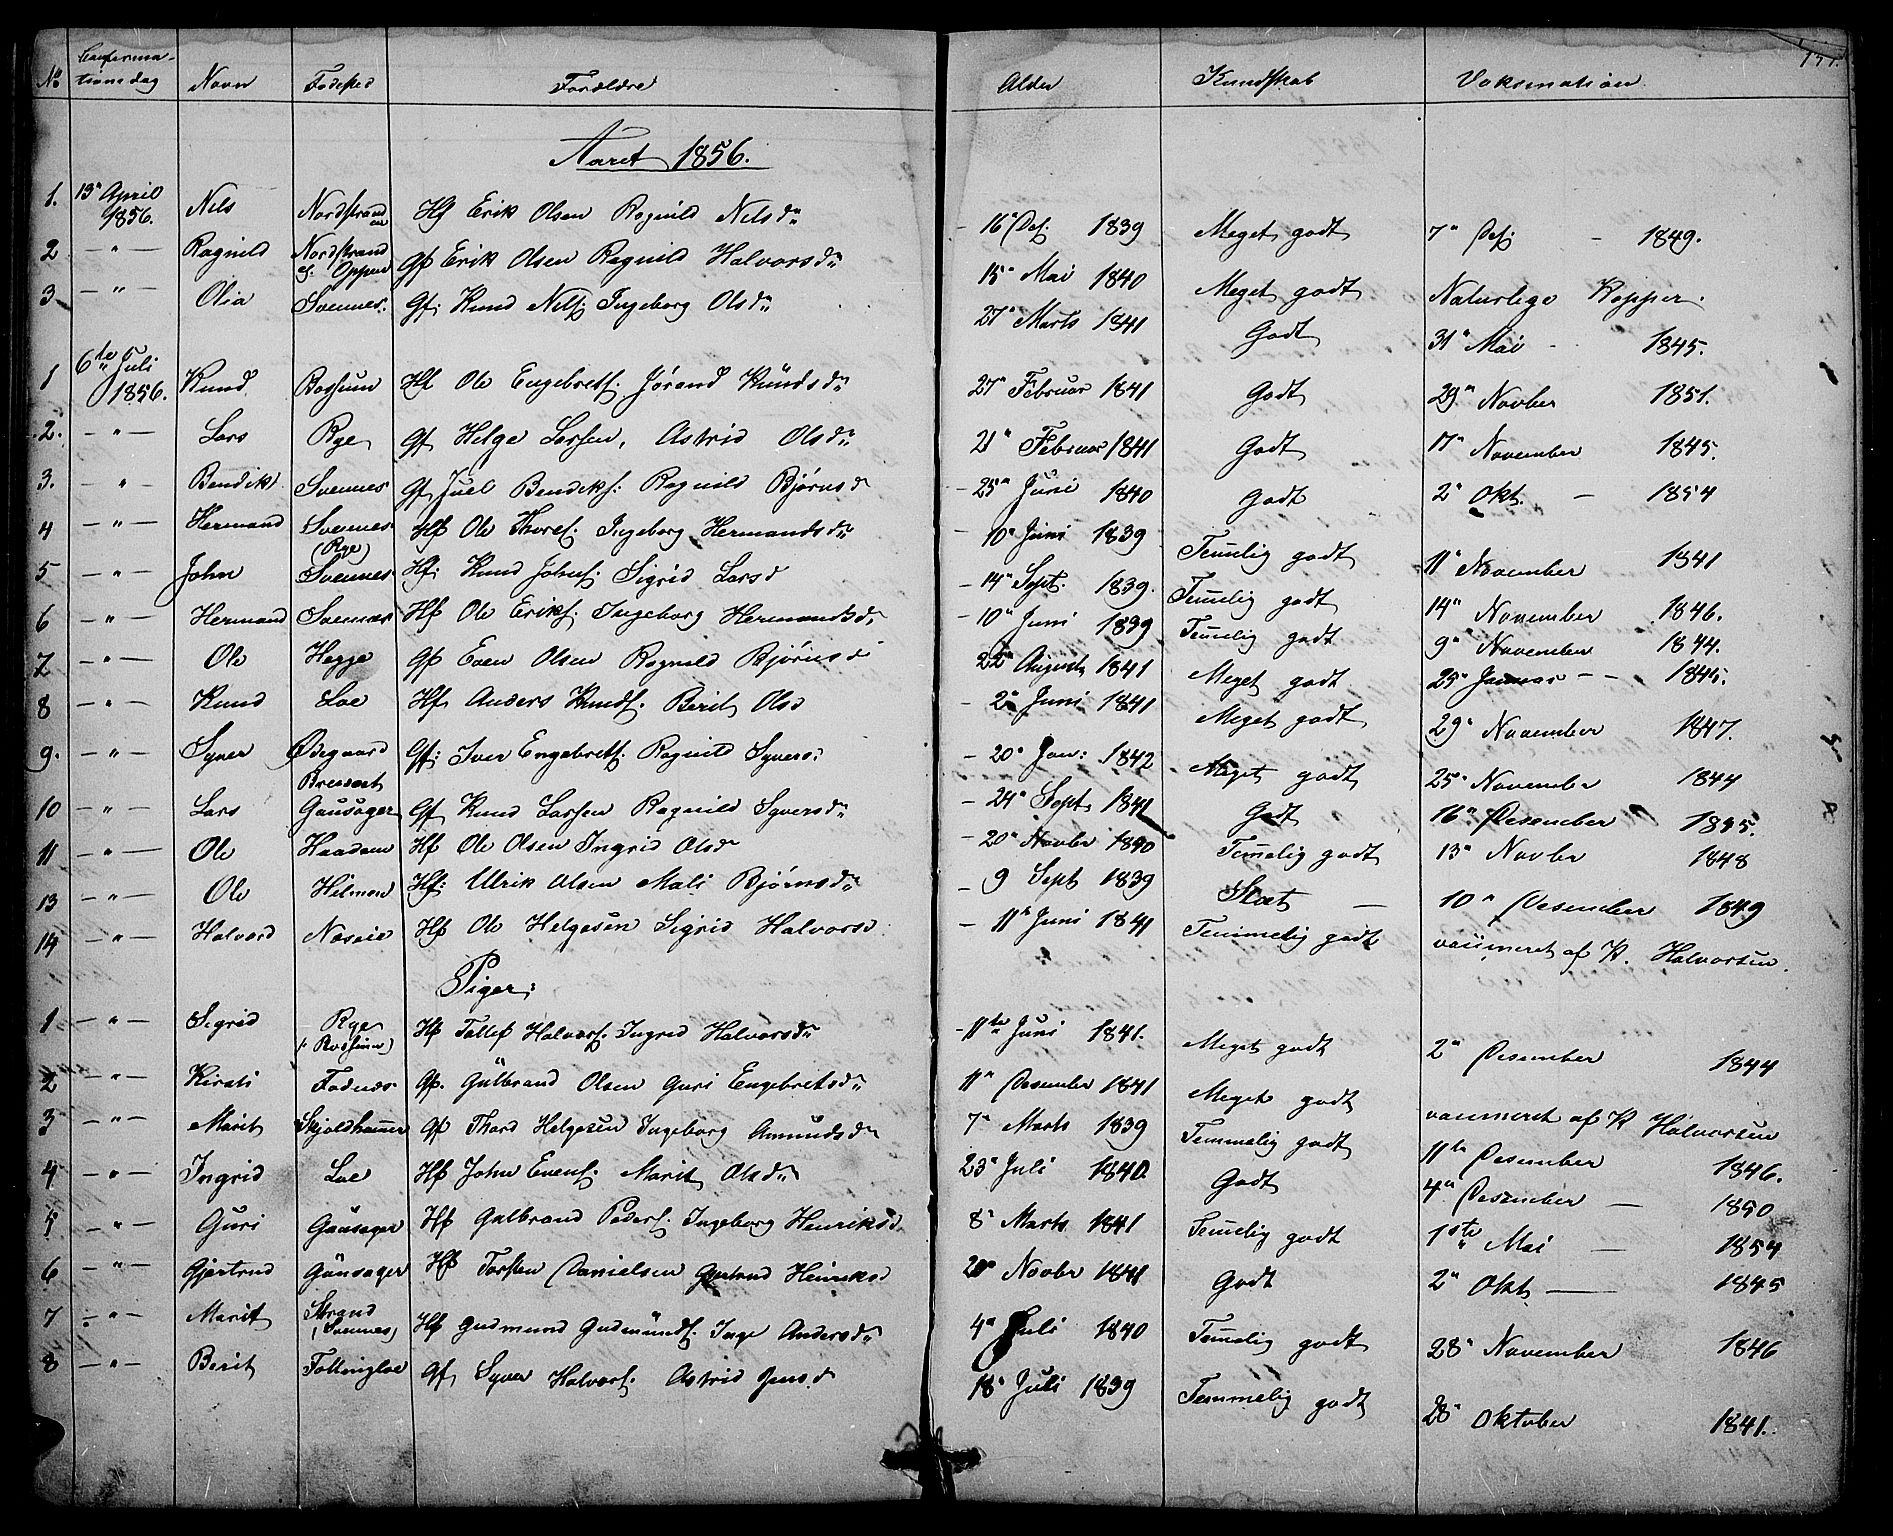 No Confirma-tionsdag Navn Fødested Forældre Alder Kundskab Vaksination 151.
Aaret 1856.
1. 13" April 1856. Nils Nordstrand Hf Erik Olsen Ragnild Nilsd" - 16" Des; 1839 Meget godt 7" Des; - 1849.
2 - " - Ragnild Nordstrand Oppen Gf Erik Olsen Ragnild Halvorsd" 15" Mai 1840 Meget godt Naturlige Kopper.
3 - " - Olia Svennes. Gf. Knud Nils; Ingeborg Olsd" 27" Marts 1841 Godt 31" Mai - 1845.
1 6te Juli 1856. Knud Rossum Hf Ole Engebretf. Jørand Knudsd" 27" Februar 1841 Godt 29" Novber 1851.
2. - " - Lars Rye Gf Helge Larsen, Astrid Olsd" 21" Februar 1841 Godt 17" November 1845.
3. - " - Bendik Svennes Gf Juel Bendiks: Ragnild Bjørnsd - 25" Juni 1840 Godt 2" Okt. - 1854
4 - " - Hermand Svennes Hf Ole Thoresf. Ingeborg Hermandsd" - 10" Juni 1839 Temelig godt 11" November 1841
5 - " - John (Rye) Svennes Hf. Knud Johnsf. Sigrid Larsd - 14" Sept. 1839. Temelig godt 14" November 1846.
6 - " - Hermand Svennes Hf Ole Eriksf. Ingeborg Hermandsd" - 10" Juni 1839 Temelig godt 9" November 1844.
7 - " - Ole Hegge Gf Even Olsen Ragnild Bjørnsd 22" August 1841 Meget godt 25" Januar - - 1845.
8 - " - Knud Loe Hf Anders Knudsf. Berit Olsd - 2" Juni 1841 Meget godt 29" November 1847.
9. - " - Syver Ødegaard Gf: Iver Engebretf. Ragnild Syvers: - 20" Jan: 1842 Meget godt 25" November 1844
10 - " - Lars Gausager Gf Knud Larsen Ragnild Syversd" - 24" Sept. 1841 Godt 16" Desember 1835.
11 - " - Ole Haadem Hf Ole Olsen Ingrid Olsd" - 20" Novber 1840 Temelig godt 13" Novbr 1848
13 - " - Ole Hilmen Hf: Ulrik Olsen Mali Bjørnsd" - 9 Sept 1839 Slet - 10" Desember 1849
14 - " - Halvord Noseie Hf Ole Helgesen Sigrid Halvorsd - 11" Juni 1841 Temmelig godt vaximeret af K. Halvorsen.
Piger:
1 - " - Sigrid Rye (Rossum) Hf Tollef Halvorsf. Ingrid Halvorsd" - 11te Juni 1841. Meget godt 2" Desember 1844
2 - " - Kirsti Fodnæs Gf. Gulbrand Olsen Guri Engebretsd" 11" Desember 1841 Meget godt vaximeret af K Halvorsen
3 - " - Marit Skjoldhammer Gf Thord Helgesen Ingeborg Amundsd" 7" Marts 1839 Temmelig godt 11te Desember 1846.
4 - " - Ingrid Loe Hf John Evensf. Marit Olsd" 23" Juli 1840. Godt 4" Desember - 1850
5 - " - Guri Gausager Hf Gulbrand Pedersf. Ingeborg Henriksd. 8" Marts 1841 Temelig godt 1ste Mai - 1854
6 - " - Gjertrud Gausager Hf Torsten Danielsen Gjertrud Henriksd 20" Novbr 1841 Godt 2" Okt - 1845
7 - " - Marit Strand (Svennes) Hf Gudmund Gudmundsf. Inge Andersd" 4" Juli 1840 Temelig godt 28" November 1846
8 - " - Berit Tollingloe Gf Syver Halvorsf. Astrid Jensd 18" Juli 1839 Temmelig godt 28" Oktober 1841.